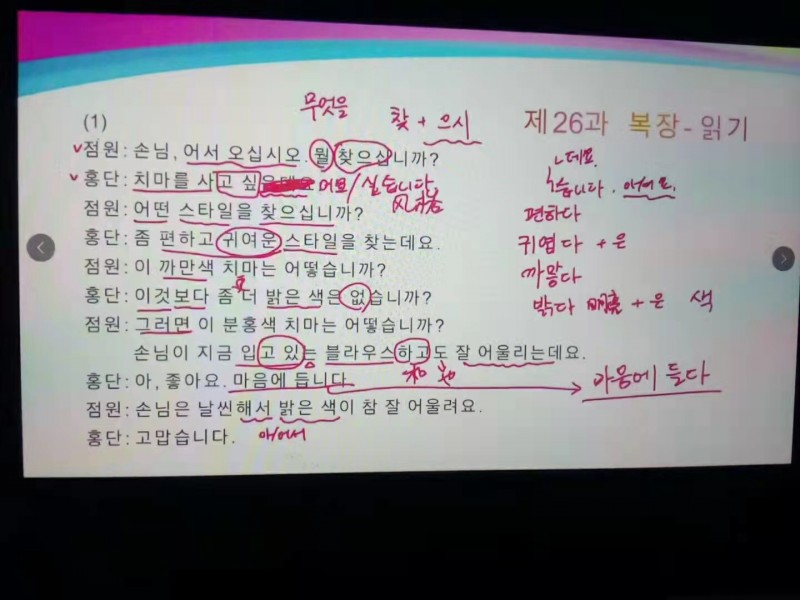 무엇을
찾 + 으시
(1)
제26과 복장 - 읽기
점원: 손님, 어서 오십시오. 뭘 찾으십니까?
홍단: 치마를 사고 싶
어요/싶습니다.
점원: 어떤 스타일을 찾으십니까?
风格
홍단: 좀 편하고 귀여운 스타일을 찾는데요.
점원: 이 까만색 치마는 어떻습니까?
홍단: 이것보다 좀 더 밝은 색은 없습니까?
점원: 그러면 이 분홍색 치마는 어떻습니까?
손님이 지금 입고 있는 블라우스하고도 잘 어울리는데요.
和 也
홍단: 아, 좋아요. 마음에 듭니다.
점원: 손님은 날씬해서 밝은 색이 참 잘 어울려요.
홍단: 고맙습니다.
아/어서
ㄴ데요.
습니다. 아/어요.
편하다
귀엽다 + 은
까맣다
밝다 明亮 + 은 색
마음에 들다